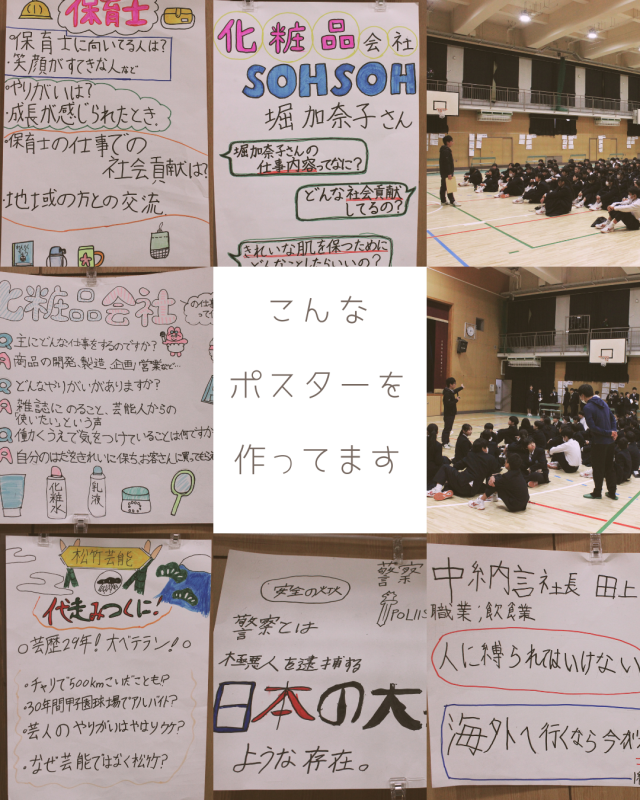 保育士
保育士に向いてる人は?
・笑顔がすてきな人など
やりがいは?
・成長が感じられたとき。
・保育士の仕事での
社会貢献は?
・地域の方との交流
化粧品会社
SOHSOH
堀 加奈子さん
堀加奈子さんの
仕事内容ってなに?
どんな社会貢献
してるの?
きれいな肌を保つために
どんなことしたらいいの?
化粧品会社
Q 主にどんな仕事をするのですか?
A 商品の開発、製造、企画、営業など…
Q どんなやりがいがありますか?
A 雑誌にのること、芸能人からの
「使いたい」という声
Q 働くうえで気をつけていることは何ですか
A 自分のはだをきれいに保ち、お客さんに
化粧水
乳液
こんな
ポスターを
作ってます
松竹芸能
代走みつくに!
○芸歴29年!大ベテラン!○
・チャリで500kmこいだことも!?
・30年間甲子園球場でアルバイト?
・芸人のやりがいはやはりウケ?
・なぜ芸能ではなく松竹?
安全の
警察
警察とは
極悪人を逮捕する
日本の大
ような存在。
中納言社長 田上
職業;飲食業
人に縛られてはいけない
海外へ行くなら今